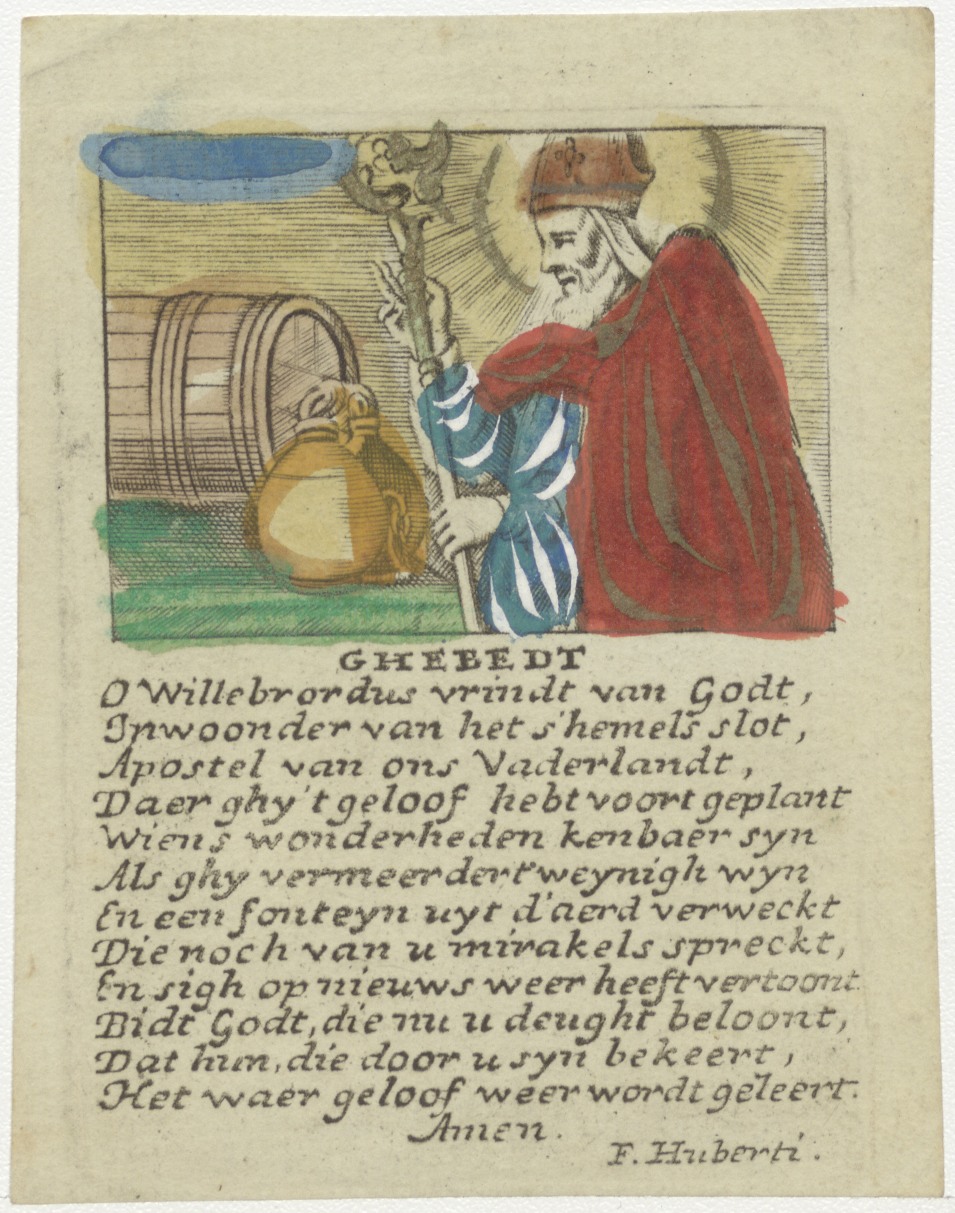 GHEBEDT
O Willebrordus vrindt van Godt,
Inwoonder van het s'hemels slot,
Apostel van ons Vaderlandt,
Daer ghy 't geloof hebt voort geplant
Wiens wonderheden kenbaer syn
Als ghy vermeerdert weynigh wyn
En een fonteyn uyt d'aerd verweckt
Die noch van u mirakels spreckt,
En sigh op nieuws weer heeft vertoont
Bidt Godt, die nu u deught beloont,
Dat hun, die door u syn bekeert,
Het waer geloof weer wordt geleert.
Amen.
F. Huberti.